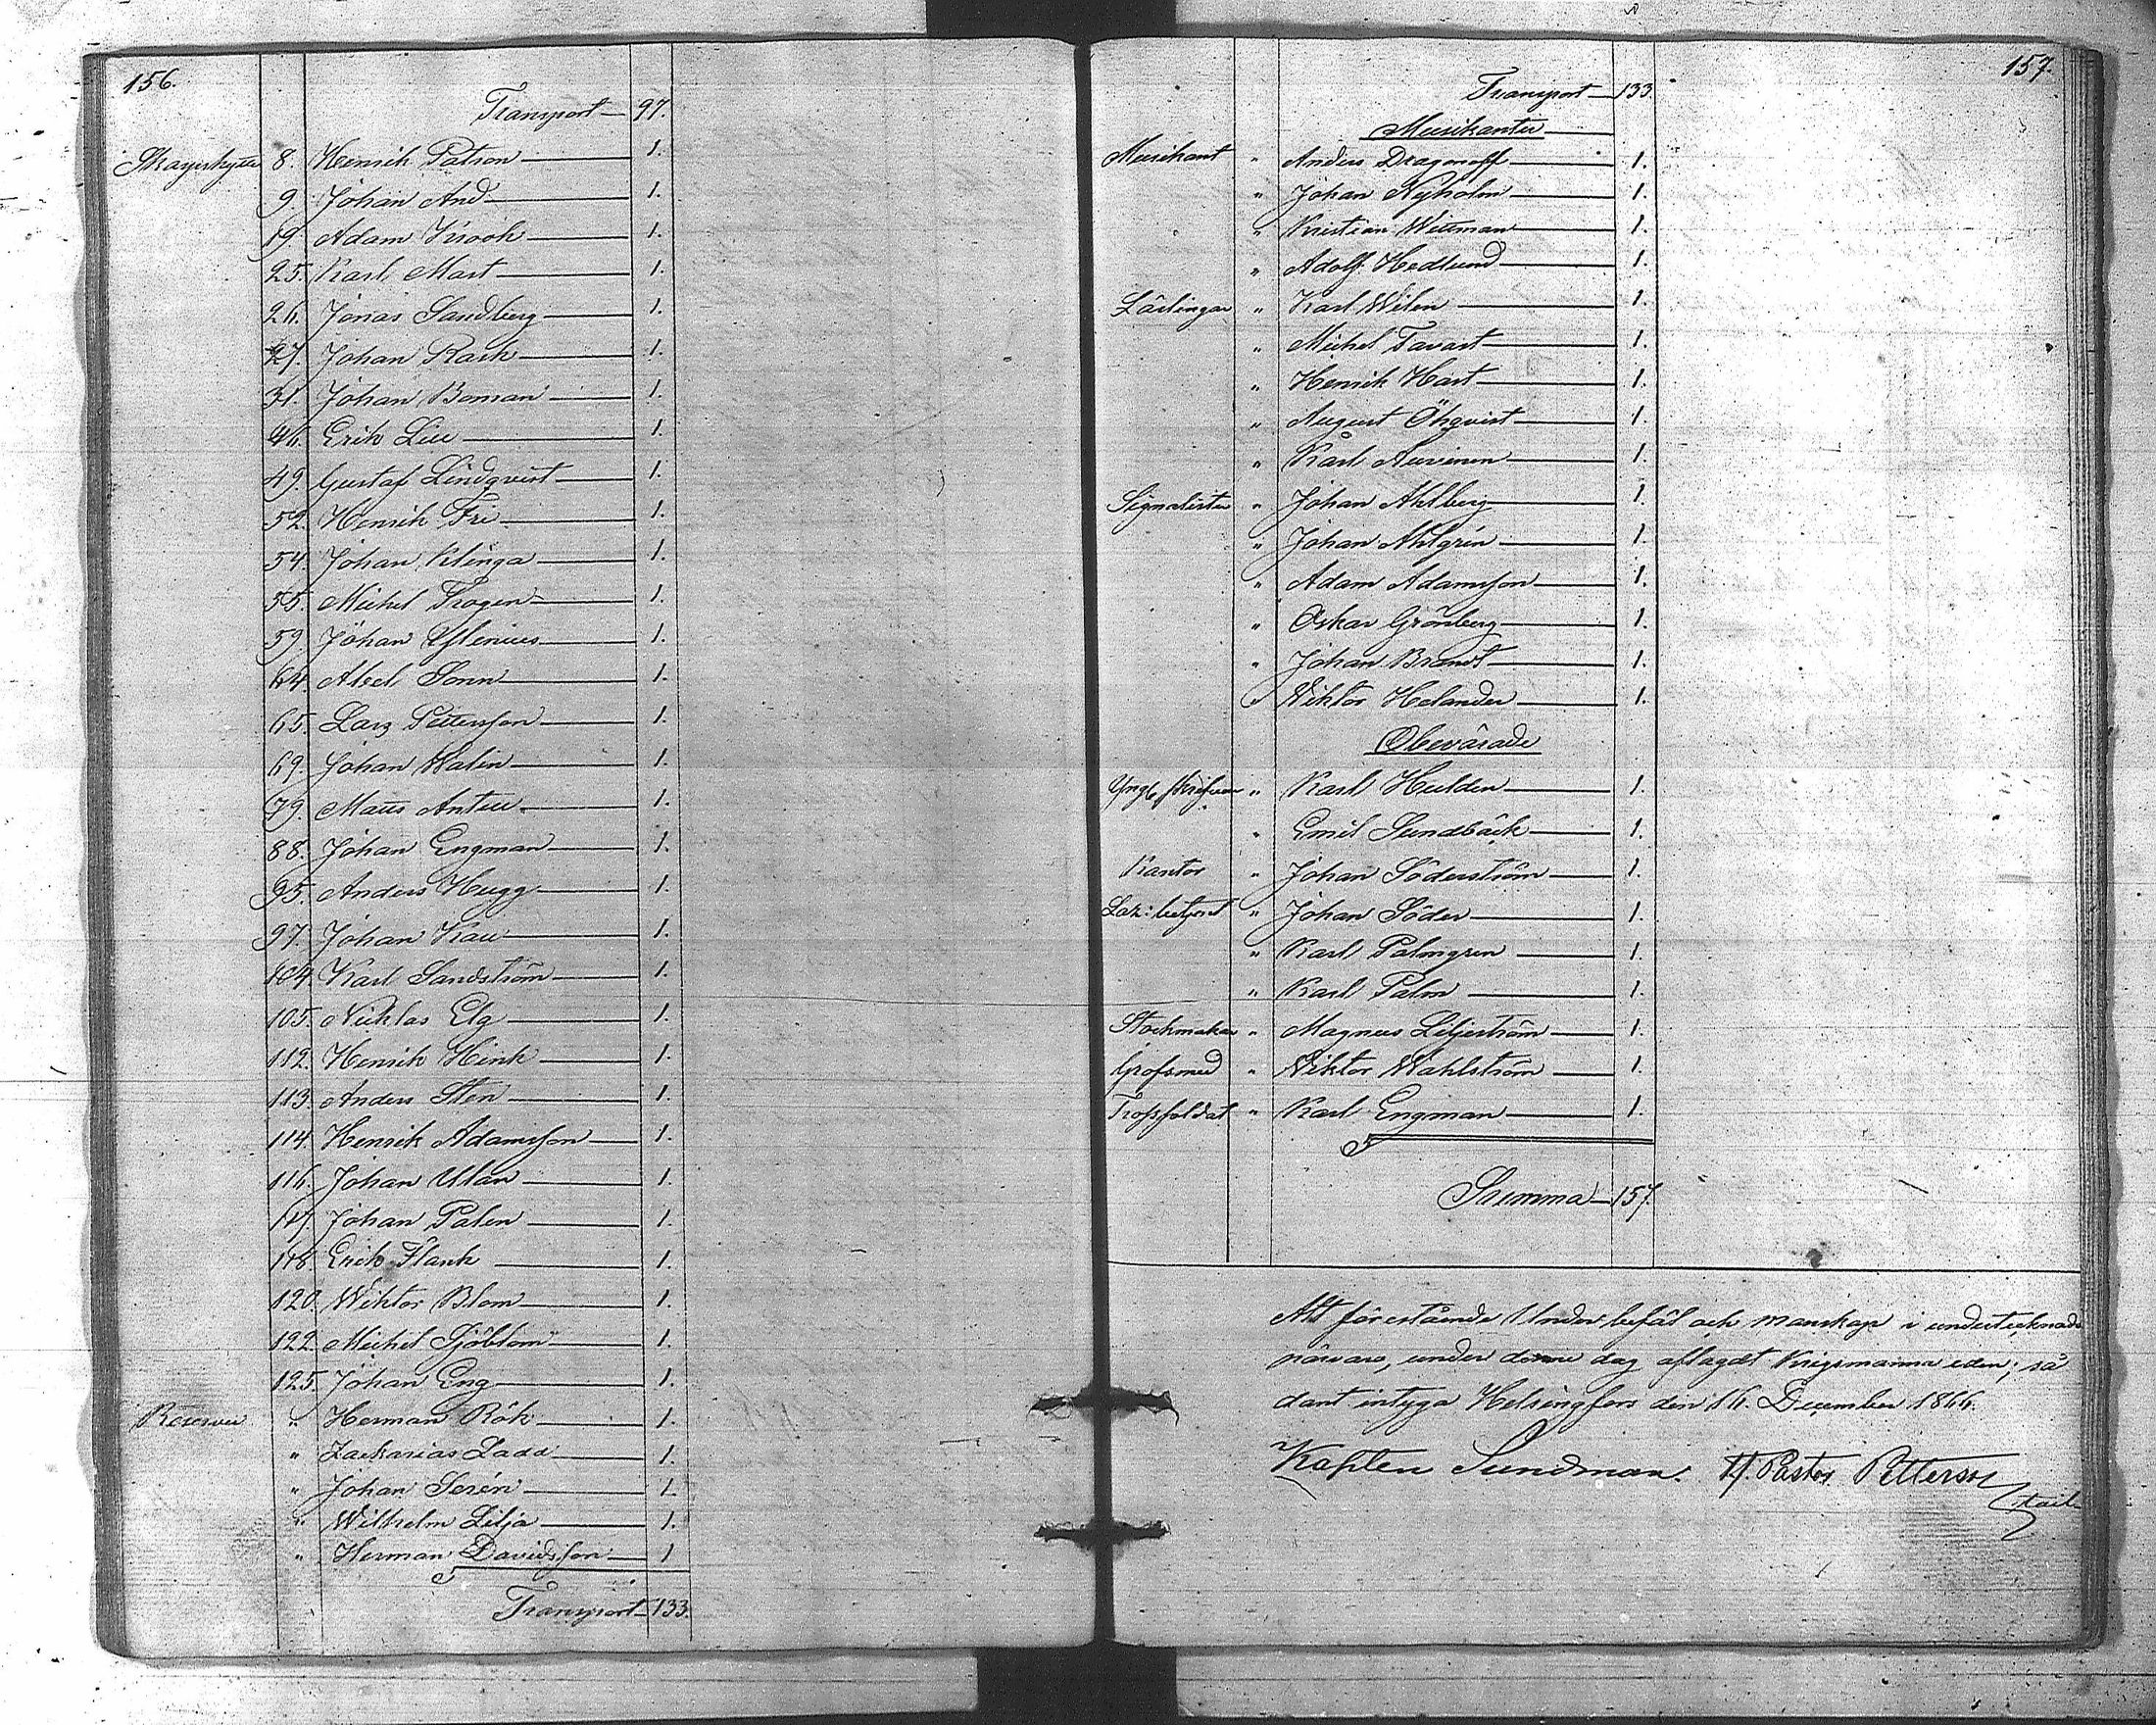 156.
Transport 97.
Skarpskytte 8. Henrik Patron 1.
9. Johan And 1.
19. Adam Krook 1.
25. Karl Mart 1.
26. Jonas Sandberg 1.
27. Johan Rask 1.
31. Johan Boman 1.
46. Erik Liu 1.
49. Gustaf Lindqvist 1.
52. Henrik Fri 1.
54. Johan Klinga 1.
55. Michel Trogen 1.
59. Johan Ylenius 1.
64. Abel Sonn 1.
65. Lars Pettersson 1.
69. Johan Walin 1.
79. Mats Anten 1.
88. Johan Engman 1.
95. Anders Hugg 1.
97. Johan Kau 1.
104. Karl Sandström 1.
105. Niklas Elg 1.
112. Henrik Hink 1.
113. Anders Sten 1.
114. Henrik Adamsson 1.
116. Johan Ulan 1.
117. Johan Palen 1.
118. Erik Flank 1.
120. Wiktor Blom 1.
122. Michel Sjöblom 1.
125. Johan Eng 1.
Reserver " Herman Rök 1.
" Zackarias Ladd 1.
" Johan Serén 1.
" Wilhelm Lilja 1.
" Herman Davidsson 1
Transport 133.
157.
Transport 133.
Musikanter
Musikant " Anders Dragonoff 1.
" Johan Nyholm 1.
" Kristian Wittman 1.
" Adolf Hedlund 1.
Lärlingar " Karl Wilen 1.
" Michel Tavast 1.
" Henrik Hast 1.
" August Öhqvist 1.
" Karl Auvinen 1.
Signalister " Johan Ahlberg 1.
" Johan Ahlgrén 1.
" Adam Adamsson 1.
" Oskar Grönberg 1.
" Johan Brandt 1.
" Wiktor Helander 1.
Obevärade
Yng. skrifvare " Karl Hulden 1.
" Emil Sundbäck 1.
Kantor " Johan Söderström 1.
Laz: betjent " Johan Söder 1.
" Karl Palmgren 1.
" Karl Palm 1.
Stockmakare " Magnus Liljeström 1.
Grofsmed " Wiktor Wahlström 1.
Trossoldat " Karl Engman 1.
Summa 157.
Att förestående Underbefäl och manskap i undertecknads
närvaro, under denne dag aflagdt Krigsmanna eden; så
dant intyga Helsingfors den 16 December 1866.
Kapten Sundman. Tf Pastor Petterson